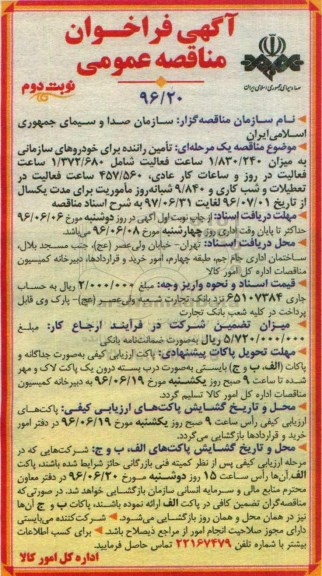 آگهی فراخوان
مناقصه عمومی
نوبت دوم
۹۶/۲۰
صدا و سیمای جمهوری اسلامی ایران
نام سازمان مناقصه‌گزار: سازمان صدا و سیمای جمهوری
اسلامی‌ایران
موضوع مناقصه یک مرحله‌ای: تأمین راننده برای خودروهای سازمانی
به میزان ۱/۸۳۰/۲۴۰ ساعت فعالیت شامل ۱/۳۷۲/۶۸۰ ساعت
فعالیت در روز و ساعات کار عادی، ۴۵۷/۵۶۰ ساعت فعالیت در
تعطیلات و شب کاری و ۹/۸۴۰ شبانه‌روز مأموریت برای مدت یکسال
از تاریخ ۹۶/۰۷/۰۱ لغایت ۹۷/۰۶/۳۱ به شرح اسناد مناقصه
مهلت دریافت اسناد: از چاپ نوبت اول آگهی در روز دوشنبه مورخ ۹۶/۰۶/۰۶
حداکثر تا پایان وقت اداری روز چهارشنبه مورخ ۹۶/۰۶/۰۸ می‌باشد.
محل دریافت اسناد: تهران- خیابان ولی‌عصر (عج)، جنب مسجد بلال،
ساختمان اداری جام جم، طبقه چهارم، امور خرید و قراردادها، دبیرخانه کمیسیون
مناقصات اداره کل امور کالا
قیمت اسناد و نحوه واریز وجه: مبلغ ۲/۰۰۰/۰۰۰ ریال به حساب
جاری ۶۵۱۰۷۳۸۴ نزد بانک تجارت شعبه ولی‌عصر (عج)- پارک وی قابل
پرداخت در کلیه شعب بانک تجارت
میزان تضمین شرکت در فرآیند ارجاع کار: مبلغ
۵/۷۲۰/۰۰۰/۰۰۰ ریال به‌صورت ضمانت‌نامه بانکی
مهلت تحویل پاکات پیشنهادی: پاکت ارزیابی کیفی به‌صورت جداگانه و
پاکات (الف، ب و ج) بایستی به‌صورت درب بسته درون یک پاکت لاک و مهر
شده تا ساعت ۹ صبح روز یکشنبه مورخ ۹۶/۰۶/۱۹ به دبیرخانه کمیسیون
مناقصات اداره کل امور کالا تسلیم گردد.
محل و تاریخ گشایش پاکت‌های ارزیابی کیفی: پاکت‌های
ارزیابی کیفی رأس ساعت ۹ صبح روز یکشنبه مورخ ۹۶/۰۶/۱۹ در دفتر امور
خرید و قراردادها بازگشایی می‌گردد.
محل و تاریخ گشایش پاکت‌های الف، ب و ج: شرکت‌هایی که در
مرحله ارزیابی کیفی پس از نظر کمیته فنی بازرگانی حائز شرایط شده باشند، پاکت
الف آن‌ها رأس ساعت ۱۵ روز دوشنبه مورخ ۹۶/۰۶/۲۰ در دفتر معاون
محترم منابع مالی و سرمایه انسانی سازمان بازگشایی خواهد شد. در صورتی‌که
مناقصه‌گران تضمین کافی در پاکت الف ارائه نموده باشند، پاکات ب و ج آن‌ها
نیز در همان محل و همان روز بازگشایی می‌شود. شرکت‌کننده می‌بایستی
دارای مجوز صلاحیت انجام امور از مراجع ذیصلاح باشد. برای کسب اطلاعات
بیشتر با شماره تلفن ۲۲۱۶۷۴۷۹ تماس حاصل فرمایید.
اداره کل امور کالا